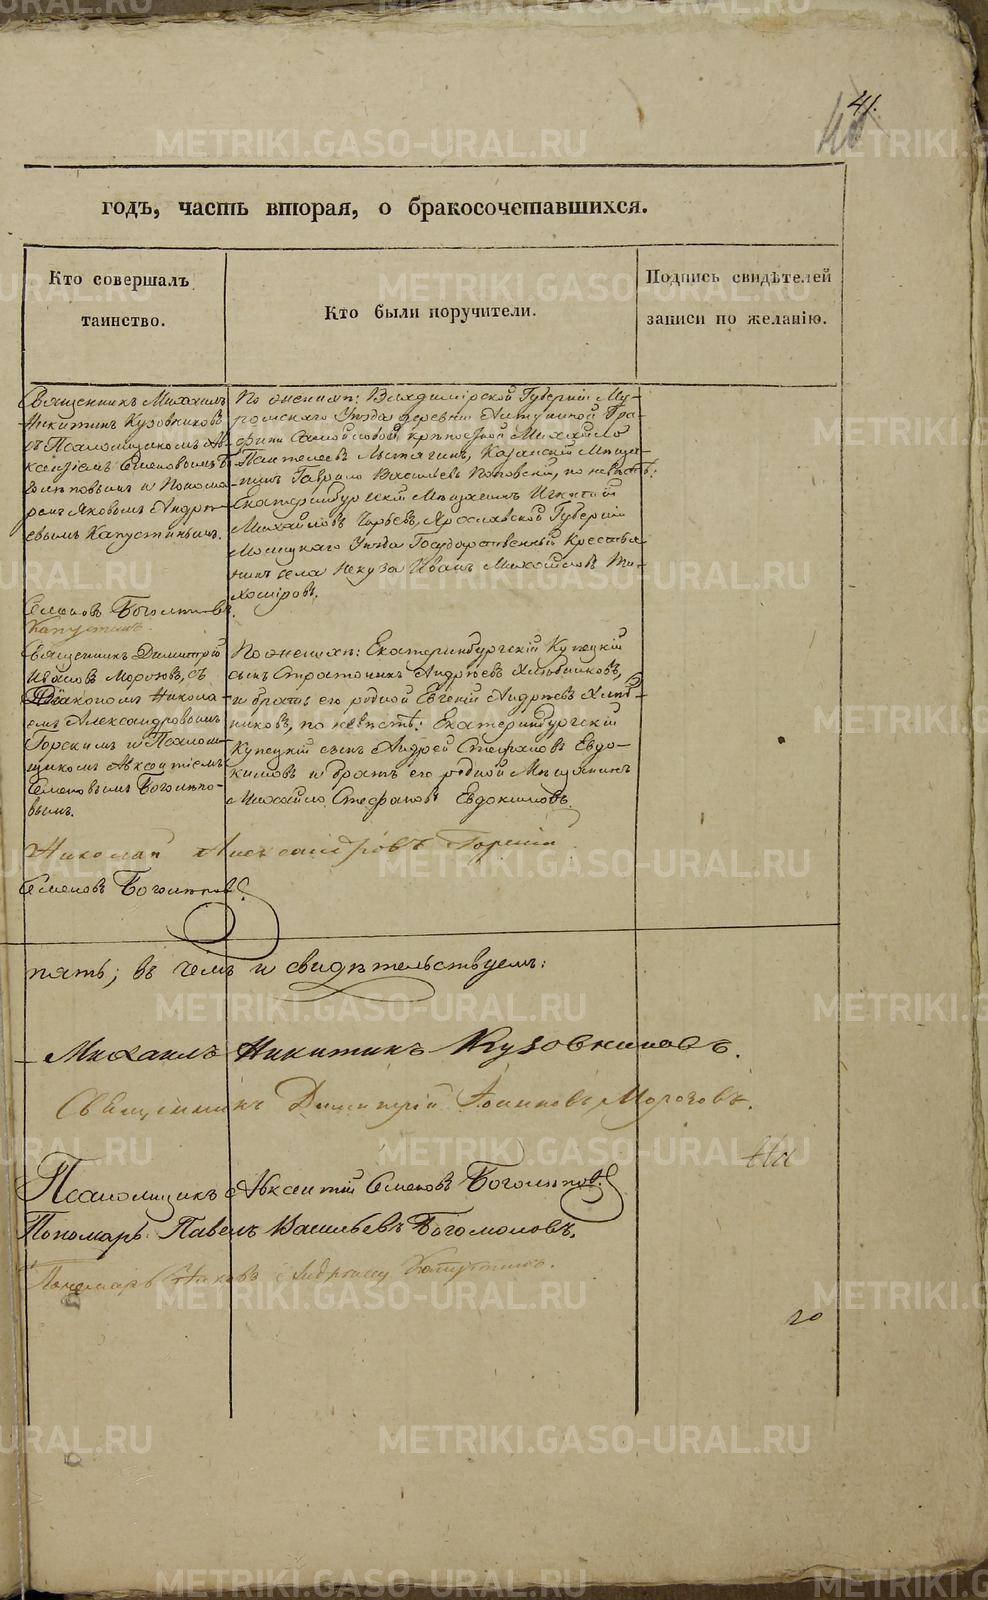 41.
годъ, часть вторая, о бракосочетавшихся.
Кто совершалъ
таинство.
Кто были поручители.
Подпись свидѣтелей
записи по желанію.
Священникъ Михаилъ
Никитинъ Кузовниковъ
съ Псаломщикомъ Ав-
ксентіемъ Семеновымъ Бо-
голѣповымъ и Понома-
ремъ Яковомъ Андре-
евымъ Капустинымъ.
Семеновъ Боголѣповъ.
Капустинъ.
По женихѣ: Владимірской Губерніи Му-
ромскаго Уѣзда деревни Гра-
фини крѣпостной Михайло
Пантелеевъ Казанскій Мѣща-
нинъ Гаврило Васильевъ Поповскій, по невѣстѣ:
Екатеринбургскій Мѣщанинъ Игнатій
Михайловъ Ярославской Губерніи
Уѣзда Государственный Крестья-
нинъ села Некуза Иванъ Михайловъ Ти-
хоміровъ.
Священникъ Димитрій
Ивановъ Морозовъ, съ
Діакономъ Никола-
емъ Александровымъ
Горскимъ и Псалом-
щикомъ Авксентіемъ
Семеновымъ Боголѣпо-
вымъ.
Николай Александровъ Горскій
Семеновъ Боголѣповъ.
По женихѣ: Екатеринбургскій Купецкій
сынъ Стратоникъ Андреевъ Хлѣбниковъ,
и братъ его родной Евгеній Андреевъ Хлѣб-
никовъ, по невѣстѣ: Екатеринбургскій
Купецкій сынъ Андрей Стефановъ Евдо-
кимовъ и братъ его родной Мѣщанинъ
Михайло Стефановъ Евдокимовъ.
пять; въ чемъ и свидѣтельствуемъ:
Михаилъ Никитинъ Кузовниковъ.
Священникъ Димитрій Іоанновъ Морозовъ.
На
Псаломщикъ Авксентій Семеновъ Боголѣповъ
Пономарь Павелъ Васильевъ Богомоловъ.
Пономарь Яковъ Андреевъ Капустинъ.
20
METRIKI.GASO-URAL.RU